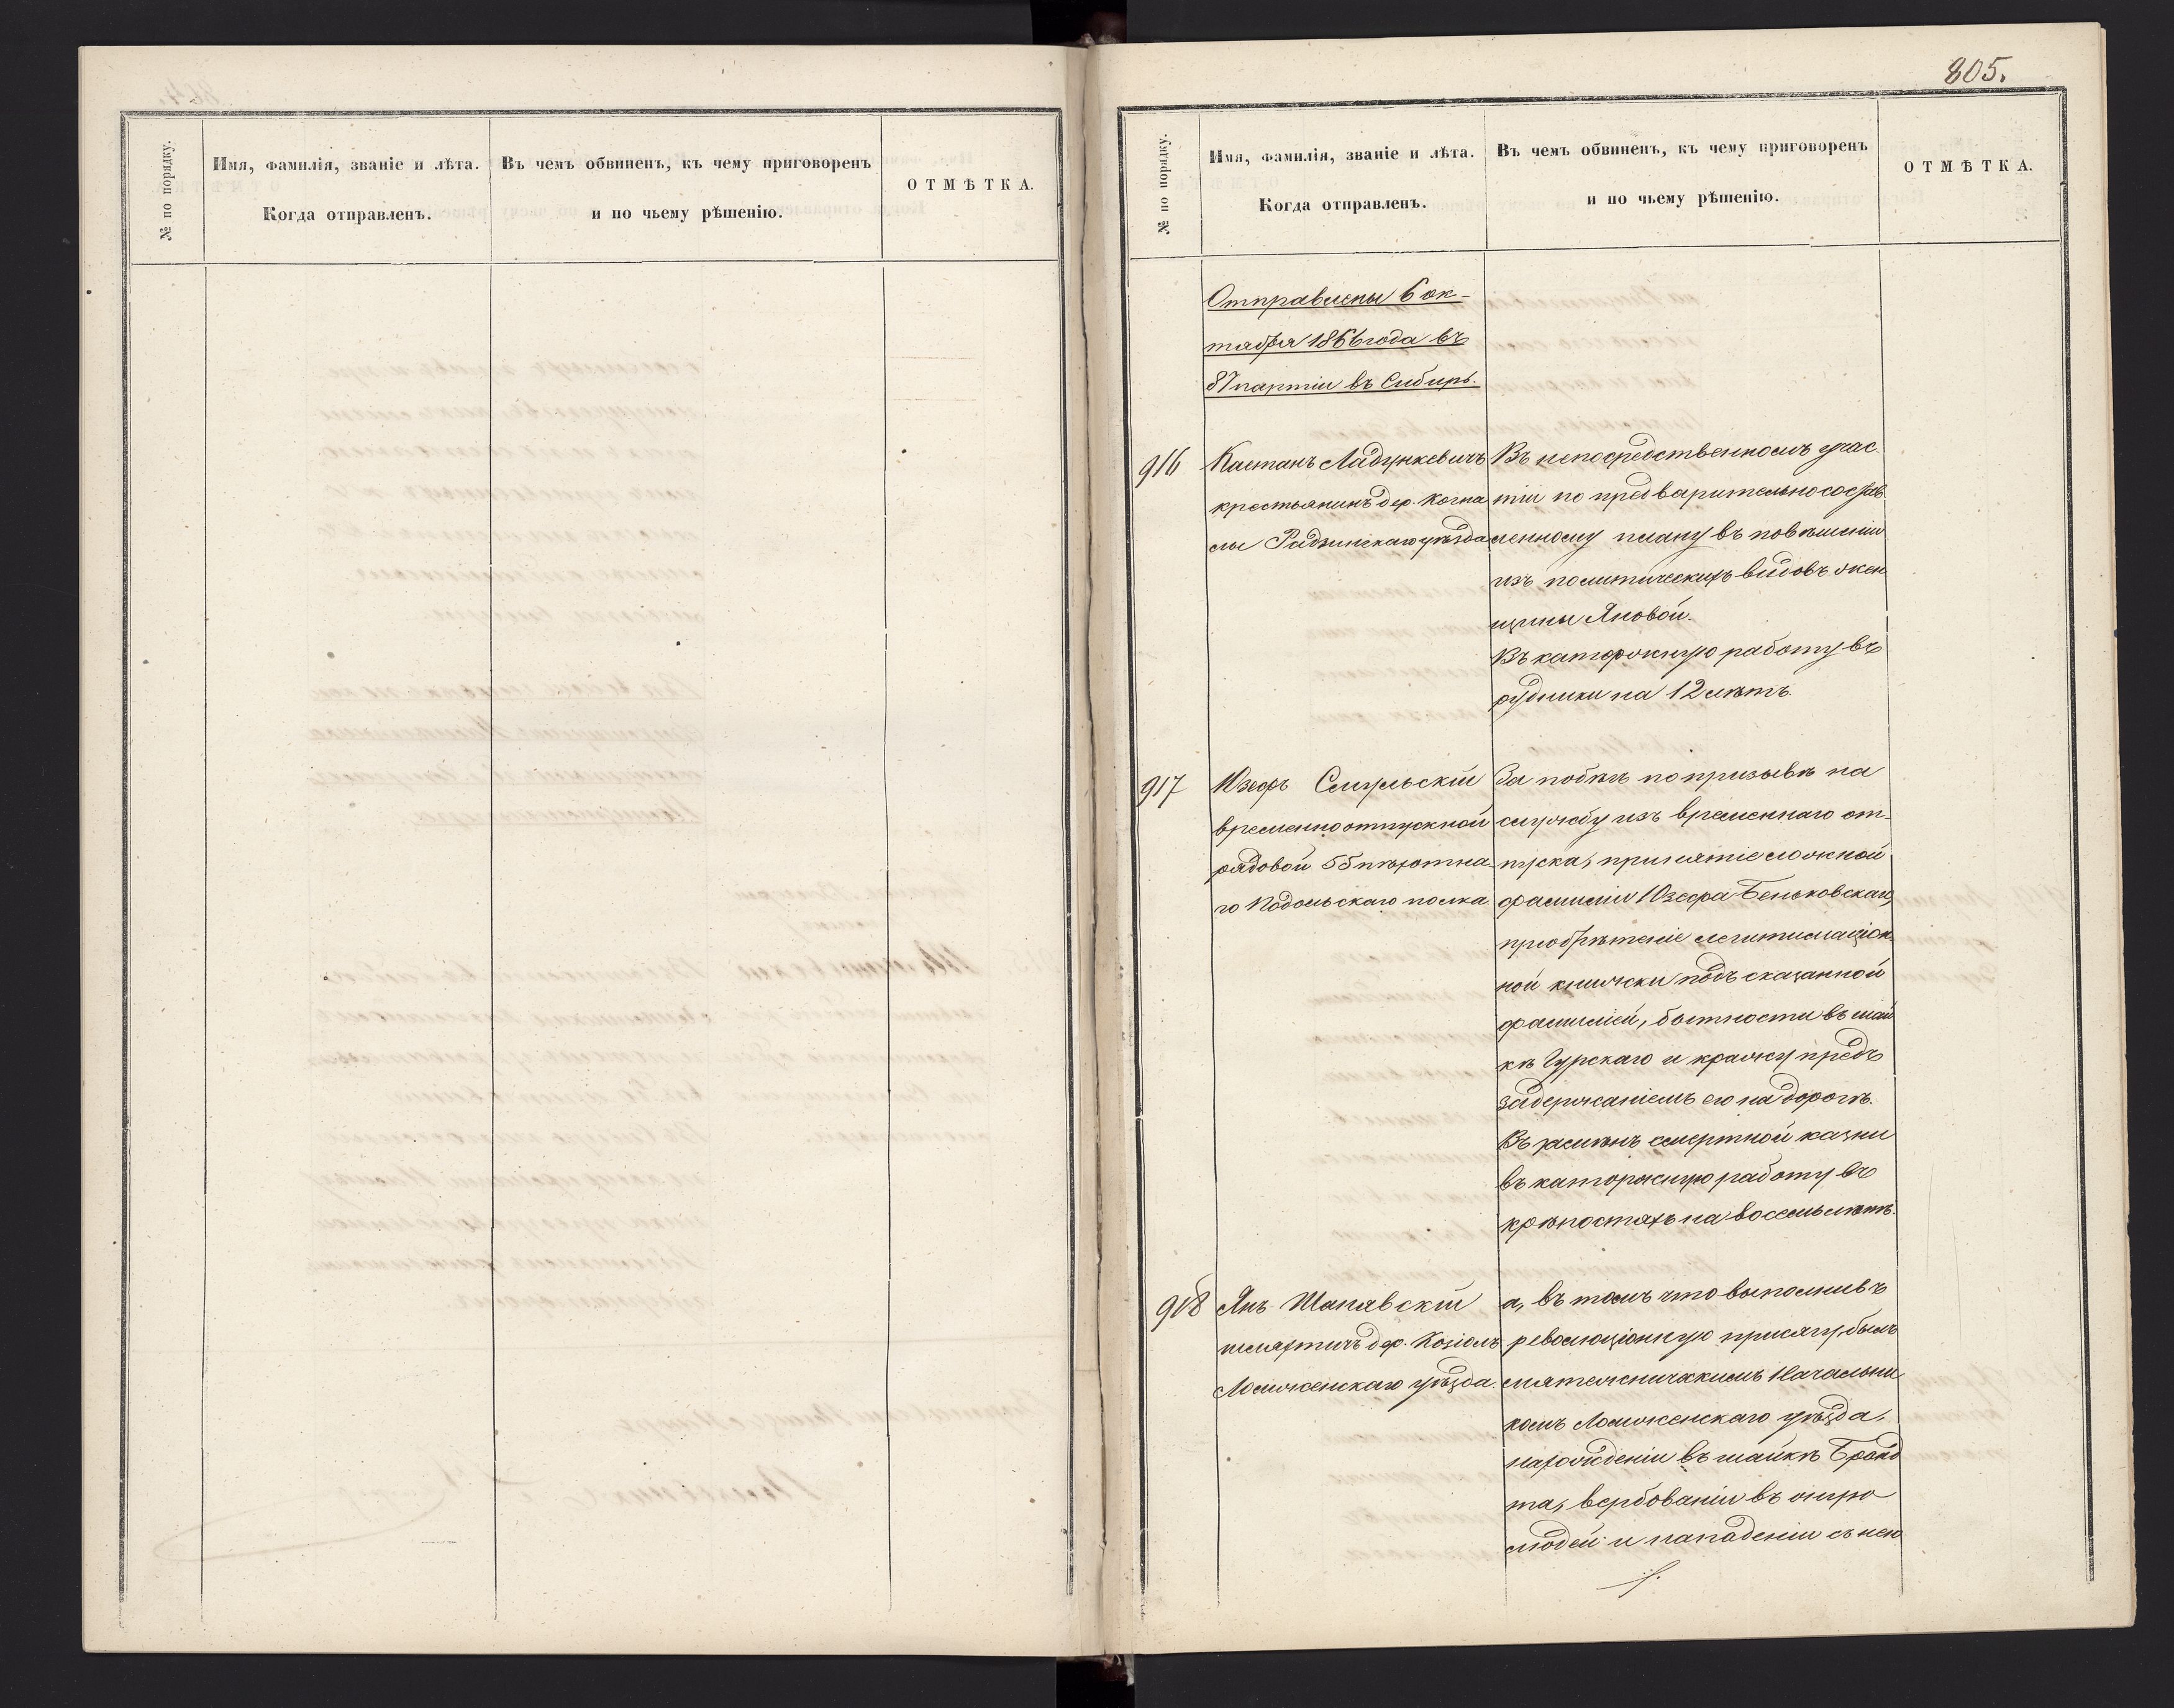 № по порядку.
Имя, фамилія, званіе и лѣта.
Когда отправленъ.
Въ чемъ обвиненъ, къ чему приговоренъ
и по чьему рѣшенію.
ОТМѢТКА.
805.
№ по порядку.
Имя, фамилія, званіе и лѣта.
Когда отправленъ.
Въ чемъ обвиненъ, къ чему приговоренъ
и по чьему рѣшенію.
ОТМѢТКА.
Отправлены 6 ок-
тября 1866 года въ
87 партіи въ Сибирь.
916
Каетанъ Ладункевичъ
крестьянинъ дер. Когна
лы Радзинскаго уѣзда
Въ непосредственномъ учас
тіи по предварительно состав
ленному плану въ повѣшеніи
изъ политическихъ видовъ жен
щины Яновой.
Въ каторжную работу въ
рудники на 12 лѣтъ.
917
Юзефъ Смульскій
временноотпускной
рядовой 55 пѣхотна
го Подольскаго полка.
За побѣгъ по призывѣ на
службу изъ временнаго от-
пуска, принятіе ложной
фамиліи Юзефа Беньковскаго,
приобрѣтеніе легитимаціон
ной книжки подъ сказанной
фамиліей, бытности въ шай
кѣ Гурскаго и кражу предъ
задержаніемъ его на дорогѣ.
Въ замѣнъ смертной казни
въ каторжную работу въ
крѣпостяхъ на восемь лѣтъ.
918
Янъ Шанявскій
шляхтичъ дер. Козіолъ
Ломженскаго уѣзда.
а, въ томъ что выполнивъ
революціонную присягу былъ
мятежническимъ Начальни
комъ Ломженскаго уѣзда,
нахожденіи въ шайкѣ Бранд
та, вербованіи въ оную
людей и нападеніи съ нею